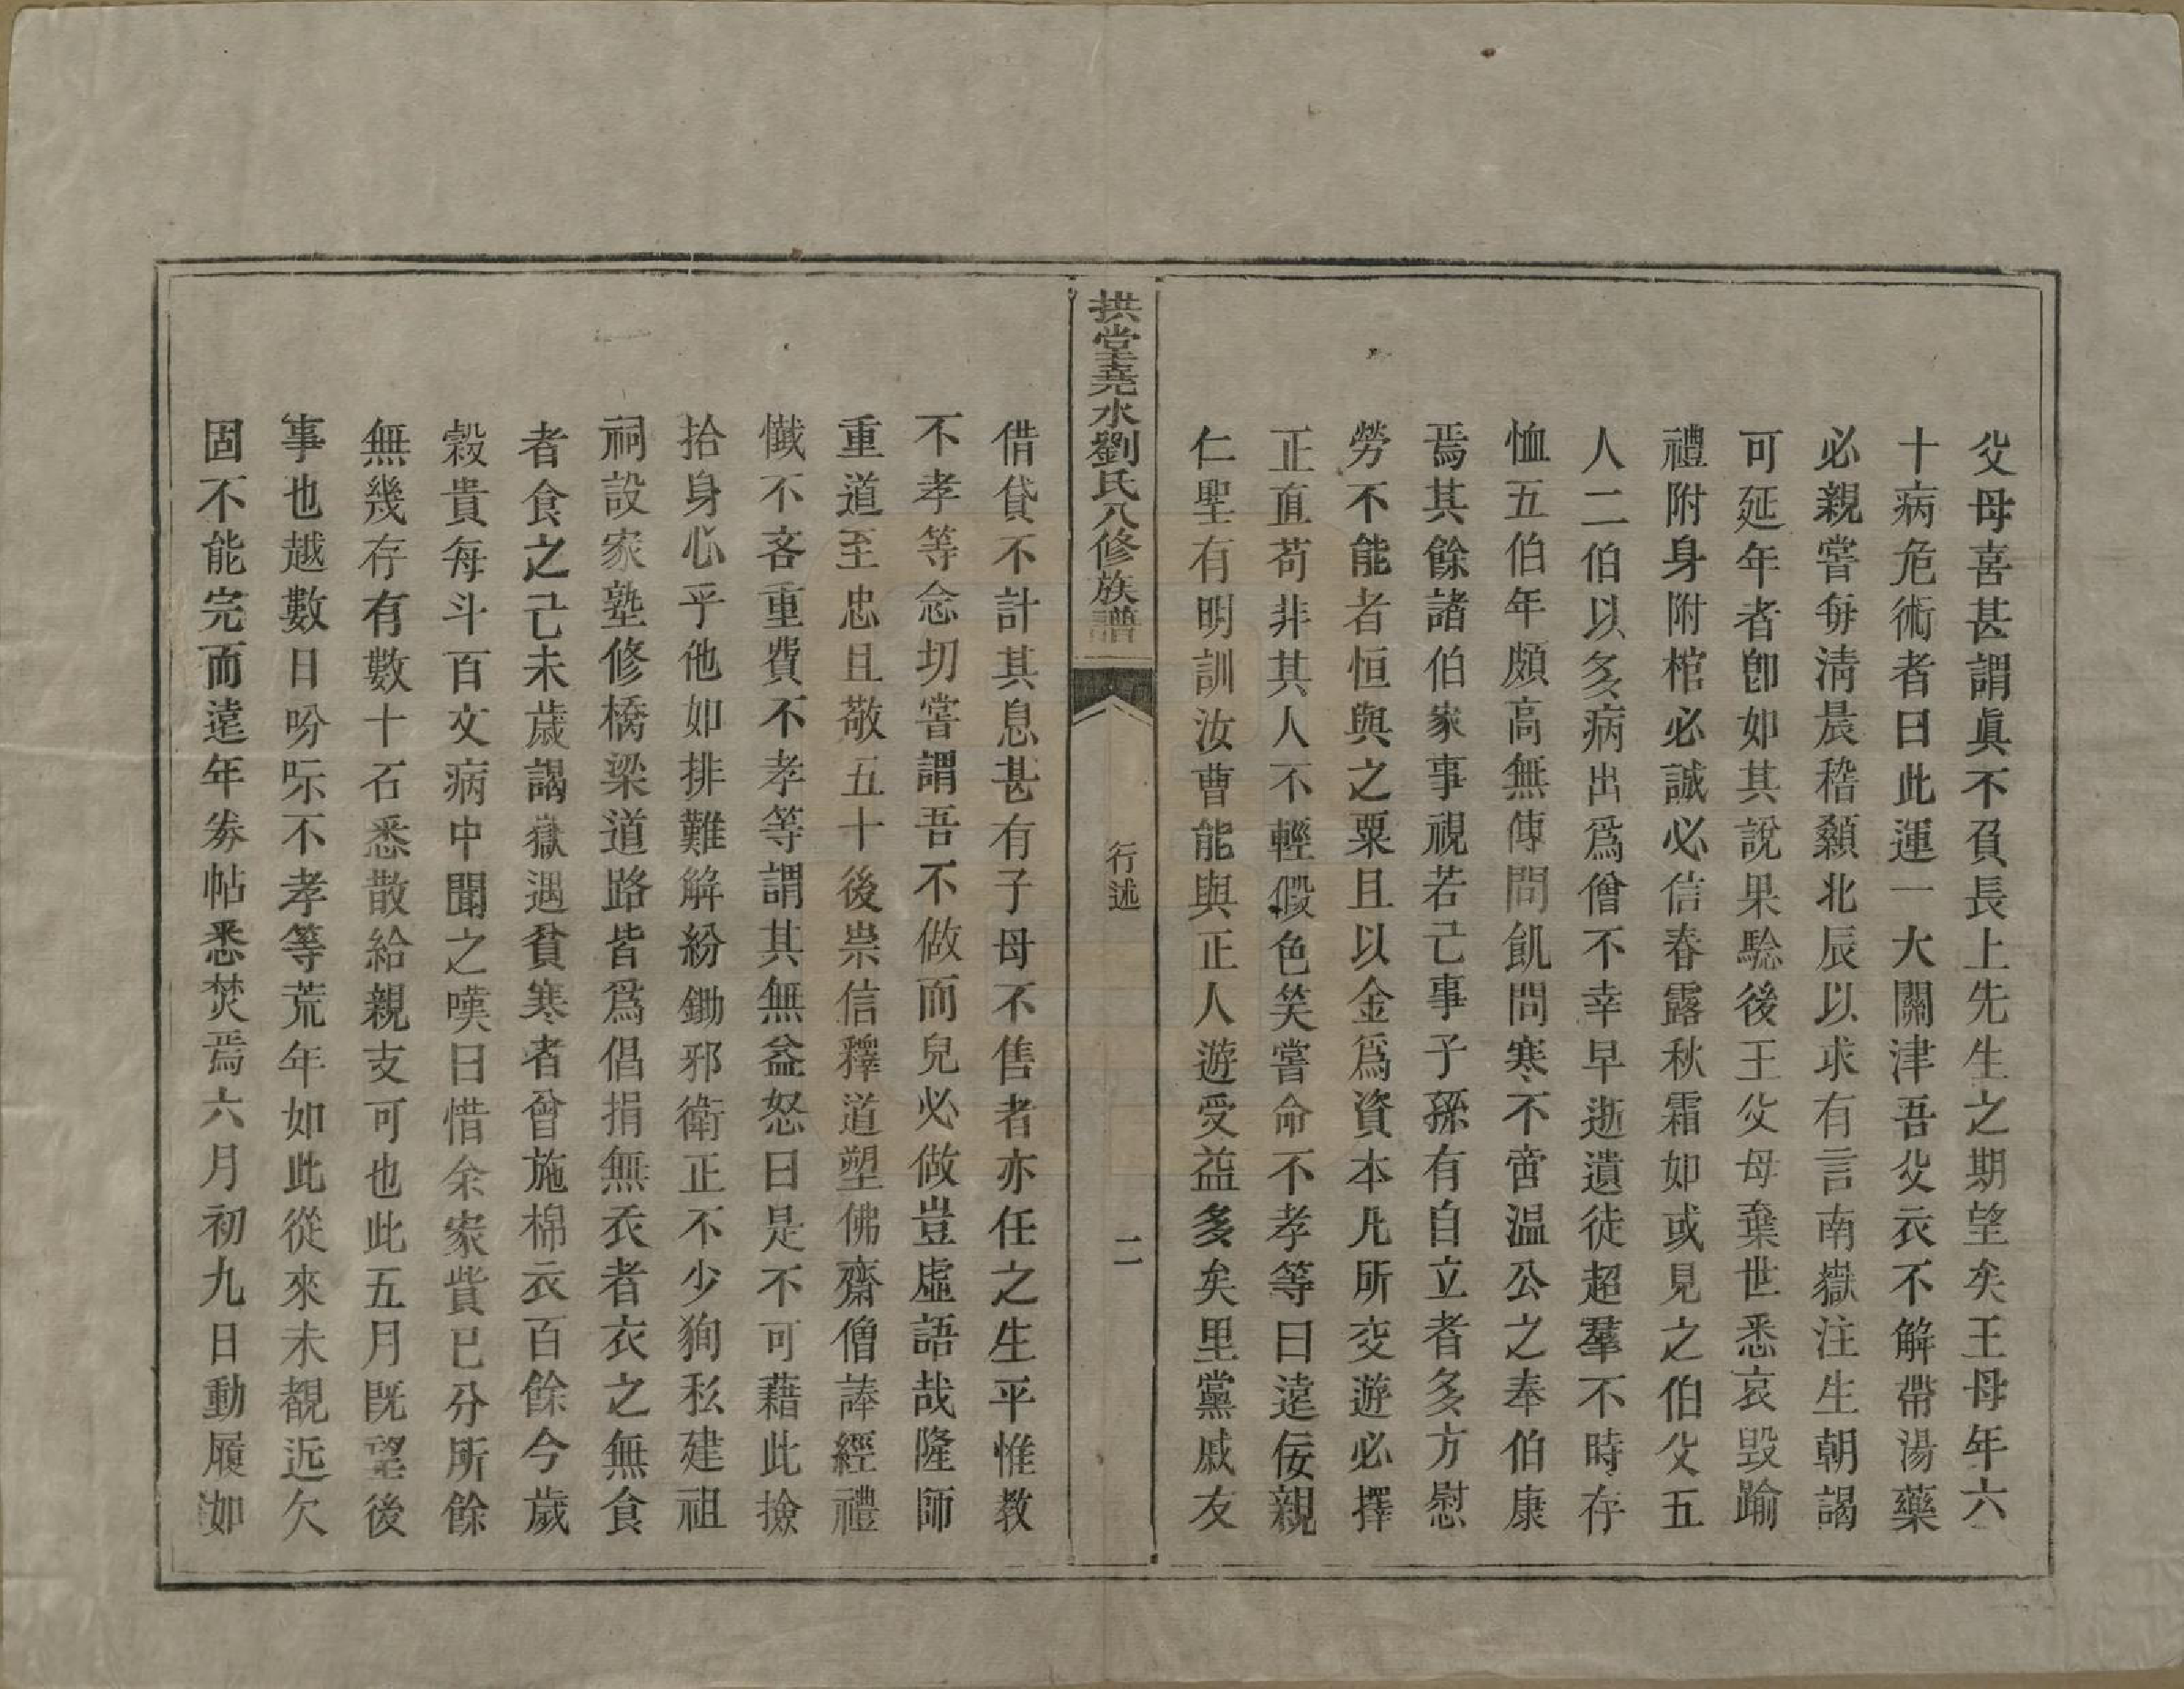 父母喜甚謂眞不負長上先生之期望矣王母年六
十病危術者曰此運一大關津吾父衣不解帶湯藥
必親嘗每淸晨稽顙北辰以求有言南嶽注生朝謁
可延年者卽如其說果驗後王父母棄世悉哀毀踰
禮附身附棺必誠必信春露秋霜如或見之伯父五
人二伯以多病出爲僧不幸早逝遺徒超羣不時存
恤五伯年頗高無傳問飢問寒不啻温公之奉伯康
焉其餘諸伯家事視若己事子孫有自立者多方慰
勞不能者恒與之粟且以金爲資本凡所交遊必擇
正直苟非其人不輕假色笑嘗命不孝等曰遠佞親
仁聖有明訓汝曹能與正人遊受益多矣里黨戚友
拱堂堯水劉氏八修族譜
行述
二
借貸不計其息甚有子母不售者亦任之生平惟教
不孝等念切嘗謂吾不做而兒必做豈虛語哉隆師
重道至忠且敬五十後崇信釋道塑佛齋僧諱經禮
懺不吝重費不孝等謂其無益怒曰是不可藉此撿
拾身心乎他如排難解紛鋤邪衛正不少狥私建祖
祠設家塾修橋梁道路皆爲倡捐無衣者衣之無食
者食之己未歲謁嶽遇貧寒者曾施棉衣百餘今歲
穀貴每斗百文病中聞之嘆曰惜余家貲已分所餘
無幾存有數十石悉散給親支可也此五月旣望後
事也越數日吩咐不孝等荒年如此從來未覩远欠
固不能完而遠年劵帖悉焚焉六月初九日動履如